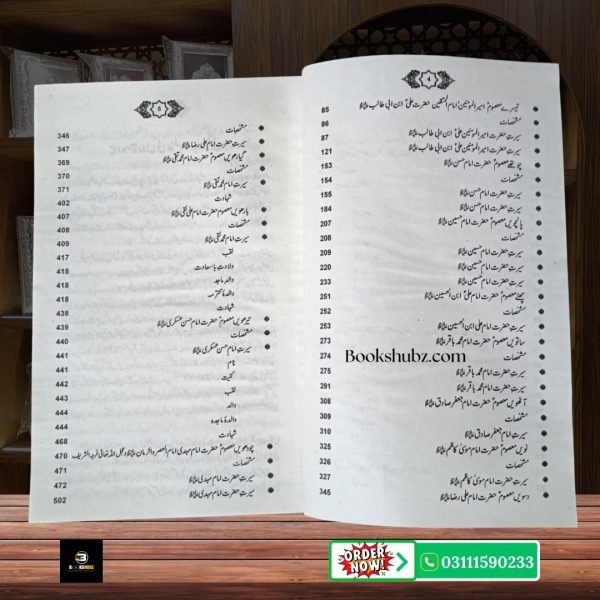 4
تیسرے معصومؑ امیر المومنینؑ امام المتقین حضرت علیؑ ابن ابی طالب علیہ السلام 85
مشخصات 86
سیرت حضرت امیر المومنین علیؑ ابن ابی طالب علیہ السلام 87
سیرت حضرت امیر المومنین علیؑ ابن ابی طالب علیہ السلام 121
چوتھے معصومؑ حضرت امام حسن علیہ السلام
مشخصات 154
سیرت حضرت امام حسن علیہ السلام 155
سیرت حضرت امام حسن علیہ السلام 184
پانچویں معصومؑ حضرت امام حسین علیہ السلام 207
مشخصات 208
سیرت حضرت امام حسین علیہ السلام 209
سیرت حضرت امام حسین علیہ السلام 220
سیرت حضرت امام حسین علیہ السلام 233
چھٹے معصومؑ حضرت امام علیؑ ابن الحسین علیہ السلام 251
مشخصات 252
سیرت حضرت امام علی ابن الحسین علیہ السلام 253
ساتویں معصومؑ حضرت امام محمد باقر علیہ السلام 273
مشخصات 274
سیرت حضرت امام محمد باقر علیہ السلام 275
سیرت حضرت امام محمد باقر علیہ السلام
آٹھویں معصومؑ حضرت امام جعفر صادق علیہ السلام
مشخصات
سیرت حضرت امام جعفر صادق علیہ السلام 310
نویں معصومؑ حضرت امام موسیٰ کاظم علیہ السلام 325
مشخصات
سیرت حضرت امام موسیٰ کاظم علیہ السلام 327
دسویں معصومؑ حضرت امام علی رضا علیہ السلام 345
5
مشخصات 346
سیرت حضرت امام علی رضا علیہ السلام 347
گیارھویں معصومؑ حضرت امام محمد تقی علیہ السلام 369
مشخصات 370
سیرت امام محمد تقی علیہ السلام 371
شہادت 402
بارھویں معصومؑ حضرت امام علی نقی علیہ السلام 407
مشخصات 408
سیرت امام محمد نقی علیہ السلام 409
لقب 417
ولادت باسعادت 418
والد ماجد 418
والدۂ محترمہ 418
شہادت 418
تیرھویں معصومؑ حضرت امام حسن عسکری علیہ السلام 439
مشخصات 440
سیرت امام حسن عسکری علیہ السلام 441
نام 441
کنیت 441
لقب 442
والد 444
والدۂ ماجدہ 444
شہادت 468
چودھویں معصومؑ حضرت امام مہدی امام العصر والزمان علیہ السلام وعجل اللہ تعالیٰ فرجہ الشریف 470
مشخصات 471
سیرت حضرت امام مہدی علیہ السلام 472
سیرت حضرت امام مہدی علیہ السلام 502
Bookshubz.com
ORDER NOW!
03111590233